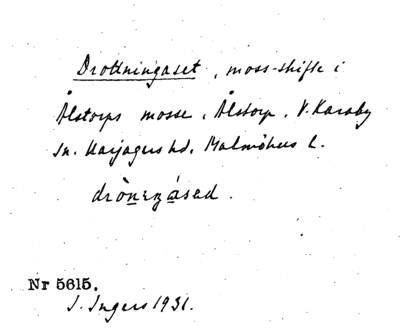 Drottningaset, moss-skifte i
Ålstorps mosse, Ålstorp, V. Karaby
sn. Harjagers hd. Malmöhus l.
drònıŋásəd.
Nr 5615.
I. Ingers 1931.